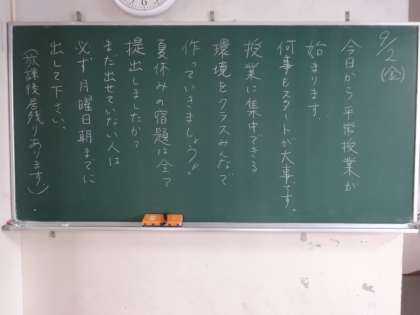 9/2(金)
今日から平常授業が
始まります。
何事もスタートが大事です。
授業に集中できる
環境をクラスみんなで
作っていきましょう!!
夏休みの宿題は全て
提出しましたか?
まだ出せていない人は
必ず月曜日朝までに
出して下さい。
(放課後居残りあります).